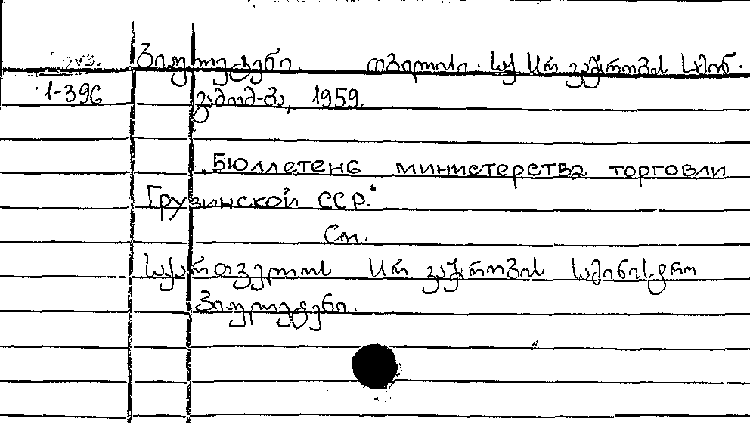 ბიულეტენი. თბილისი. საქ. სსრ ვაჭრობის სამინ.
1-396 გამომ-ბა, 1959.
„Бюллетень министерства торговли
Грузинской ССР.“
См.
საქართველოს სსრ ვაჭრობის სამინისტრო
ბიულეტენი.